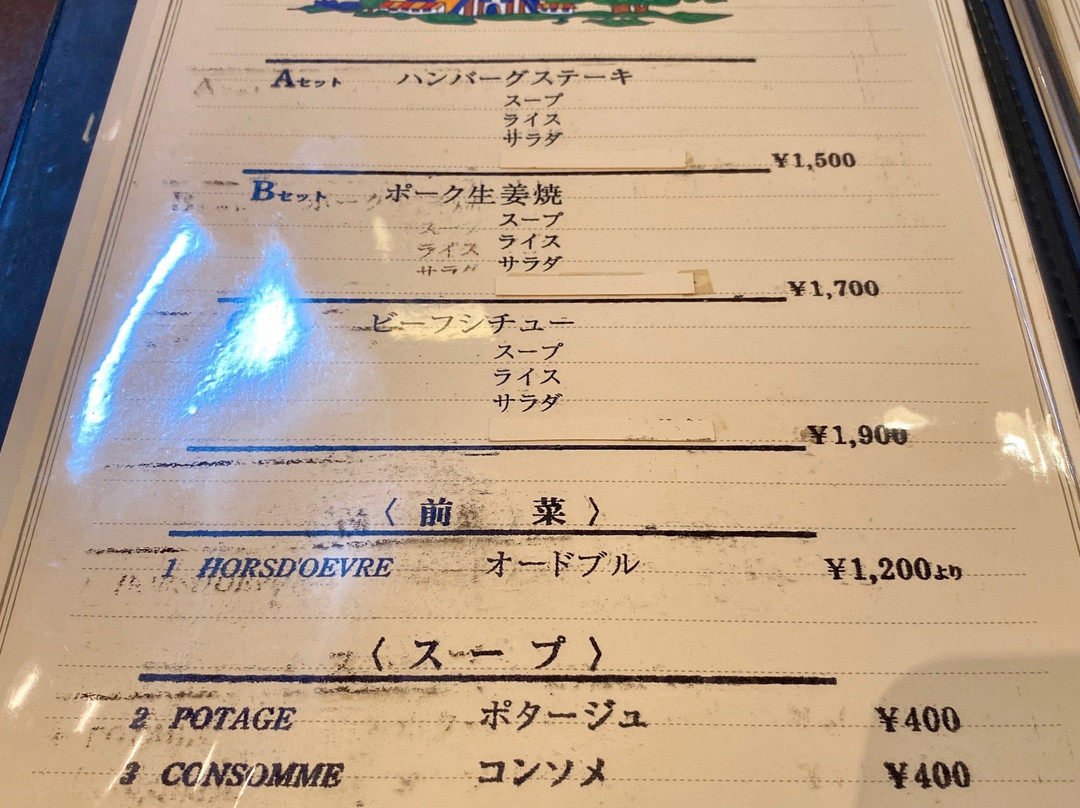 Aセット ハンバーグステーキ
スープ
ライス
サラダ
¥1,500
Bセット ポーク生姜焼
スープ
ライス
サラダ
¥1,700
ビーフシチュー
スープ
ライス
サラダ
¥1,900
〈前 菜〉
1 HORSD'OEVRE オードブル ¥1,200より
〈スープ〉
2 POTAGE ポタージュ ¥400
3 CONSOMME コンソメ ¥400